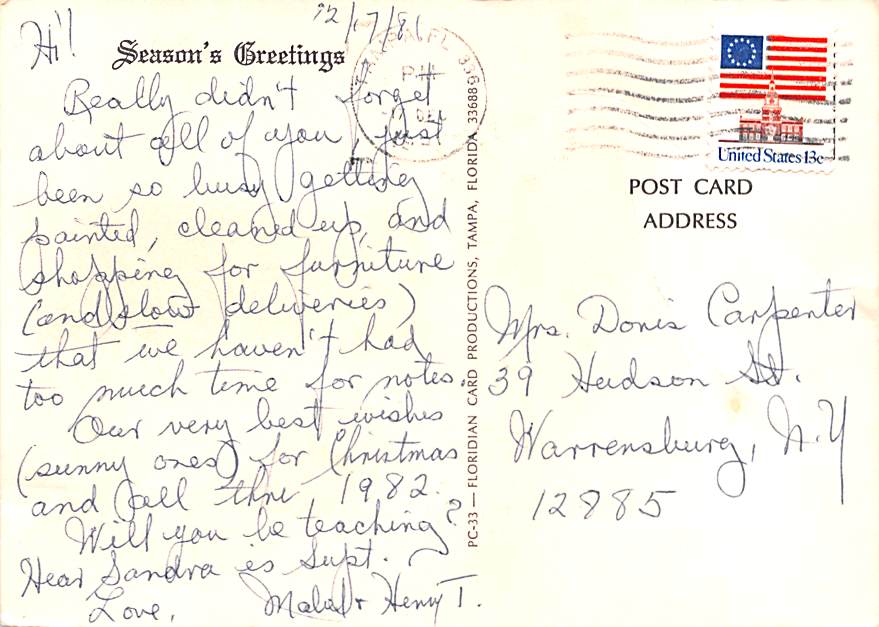 12/7/81
Hi!
Season's Greetings
Really didn't forget
about all of you, just
been so busy getting
painted, cleaned up, and
shopping for furniture
(and slow deliveries)
that we haven't had
too much time for notes.
Our very best wishes
(sunny ones) for Christmas
and all thru 1982.
Will you be teaching?
Hear Sandra is Supt.
Love,
Mabel + Henry T.
PC-33 — FLORIDIAN CARD PRODUCTIONS, TAMPA, FLORIDA 33688
TAMPA, FL 336
PM
DEC
United States 13c
POST CARD
ADDRESS
Mrs. Doris Carpenter
39 Hudson St.
Warrensburg, N.Y
12885